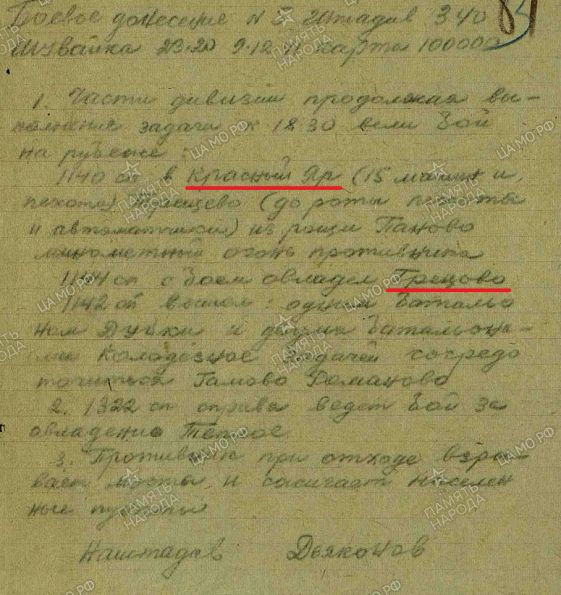 Боевое донесение N 2 Штадив 340
Шивайка 23.20 9.12.41 карта 100000
1. Части дивизии продолжая вы-
полнение задачи к 18.30 вели бой
на рубеже:
1140 сп в Красный Яр (15 машин и
пехота) (до роты пехоты
и автоматчики) из рощи Паново
минометный огонь противника
1144 сп с боем овладел Грецово
1142 сп вышел: одним баталь
ном Дубки и двумя батальона-
ми Колодезное задачей сосредо
точиться Гамово Доманово
2. 1322 сп справа ведет бой за
овладение Теплое
3. Противник при отходе взры-
вает мосты и сжигает населен
ные пункты
Наштадив Дьяконов
ПАМЯТЬ НАРОДА
ЦАМО.РФ